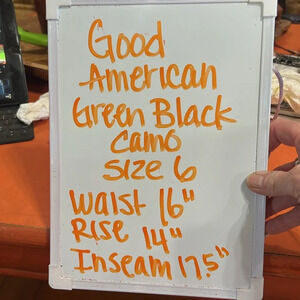 Good
American
Green Black
Camo
Size 6
Waist 16"
Rise 14"
Inseam 17.5"